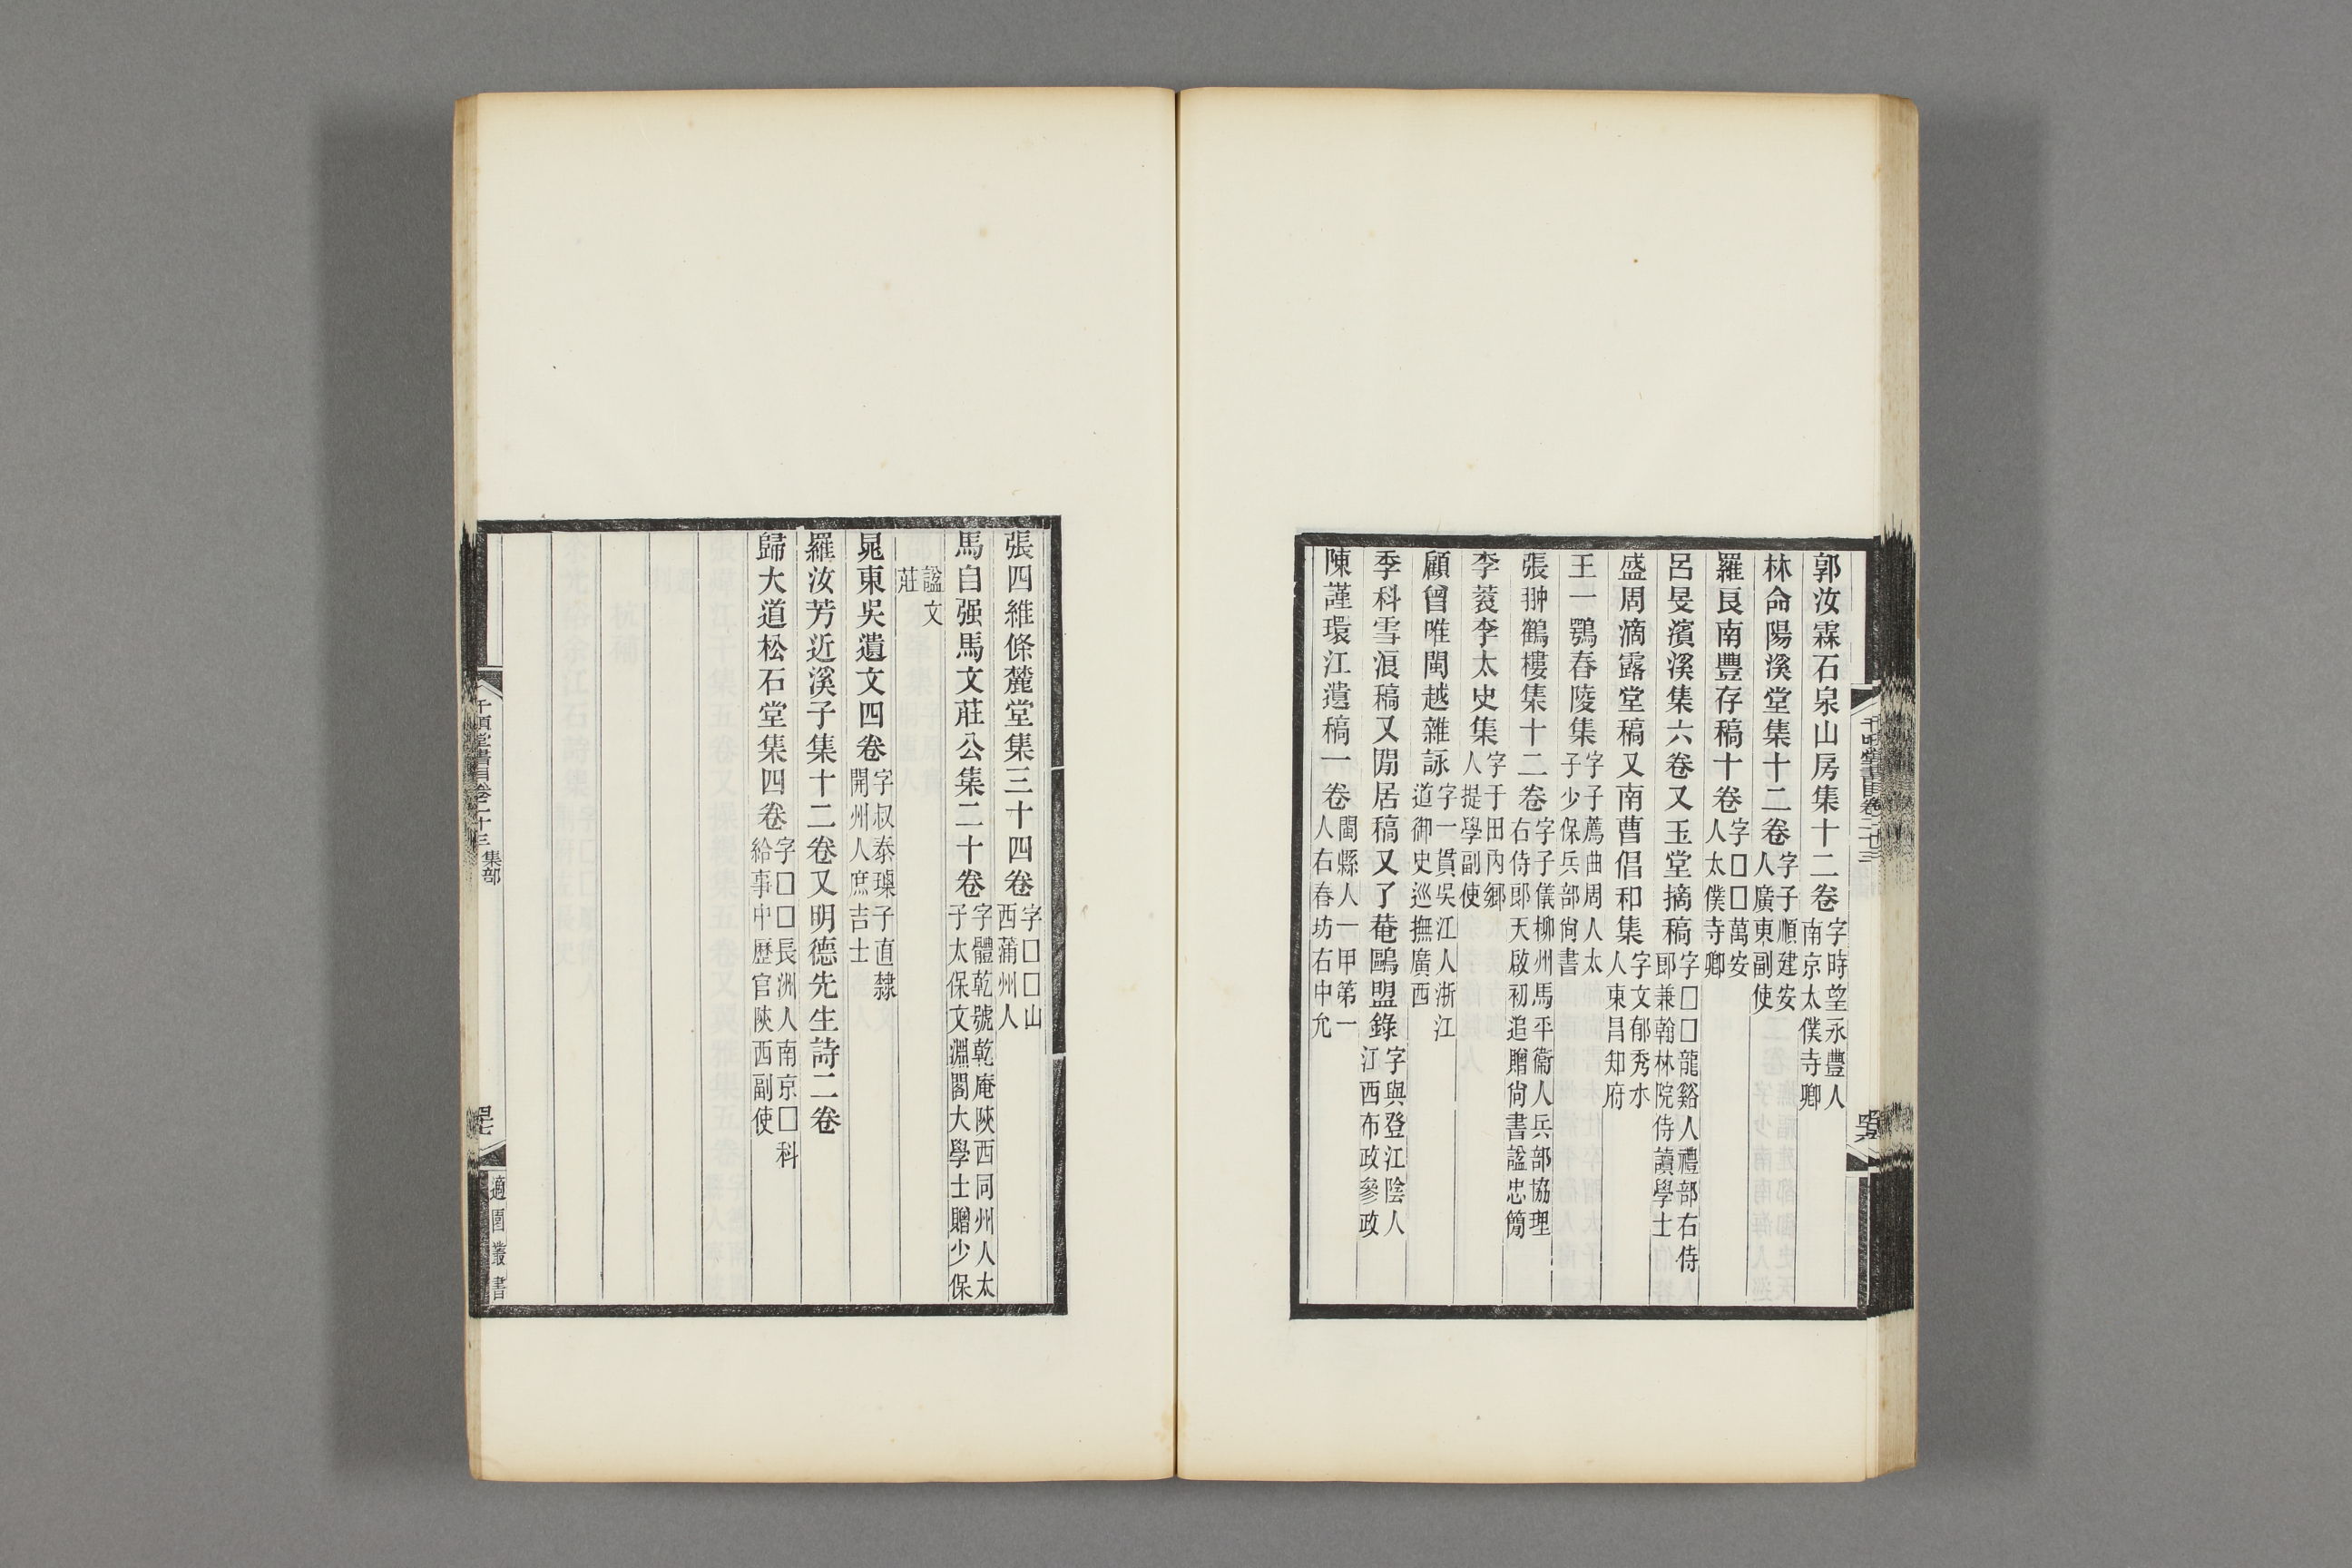 郭汝霖石泉山房集十二卷字時望永豐人南京太僕寺卿
林命陽溪堂集十二卷字子順建安人廣東副使
羅良南豐存稿十卷字□□萬安人太僕寺卿
呂旻濱溪集六卷又玉堂摘稿字□□龍谿人禮部右侍郎兼翰林院侍讀學士
盛周滴露堂稿又南曹倡和集字文郁秀水人東昌知府
王一鶚春陵集字子薦曲周人太子少保兵部尙書
張翀鶴樓集十二卷字子儀柳州馬平衞人兵部協理右侍郎天啟初追贈尙書謚忠簡
李蓘李太史集字于田內鄉人提學副使
顧曾唯閩越雜詠字一貫吳江人浙江道御史巡撫廣西
季科雪浪稿又閒居稿又了菴鷗盟錄字與登江陰人江西布政參政
陳謹環江遺稿一卷閩縣人一甲第一人右春坊右中允
張四維條麓堂集三十四卷字□□山西蒲州人
馬自强馬文莊公集二十卷字體乾號乾庵陝西同州人太子太保文淵閣大學士贈少保
謚文莊
晁東吳遺文四卷字叔泰瑮子直隸開州人庶吉士
羅汝芳近溪子集十二卷又明德先生詩二卷
歸大道松石堂集四卷字□□長洲人南京□科給事中歷官陝西副使
千頃堂書目卷二十三 集部
適園叢書